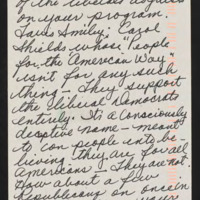 of the liberal
on your program.
Carol
Shields whose "People
for the American Way"
isn't for any such
thing — they support
the liberal Democrats
entirely. It's a consciously
deceptive name — meant
to con people into be-
lieving they are for all
Americans — They are not.
How about a few
Republicans on once in
your